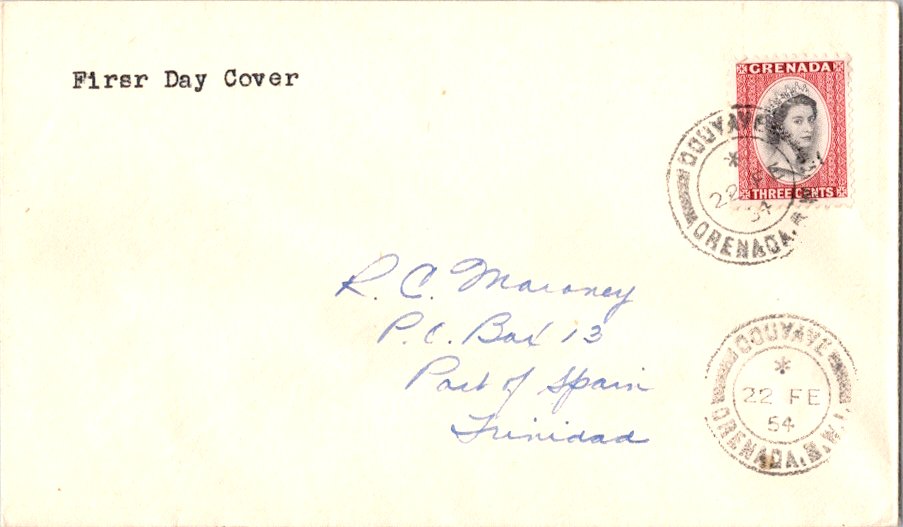 Firsr Day Cover
GRENADA
THREE CENTS
GOUYAVE
*
22 FE
54
GRENADA, B.W.I.
R. C. Maroney
P.C. Box 13
Port of Spain
Trinidad
GOUYAVE
*
22 FE
54
GRENADA, B.W.I.